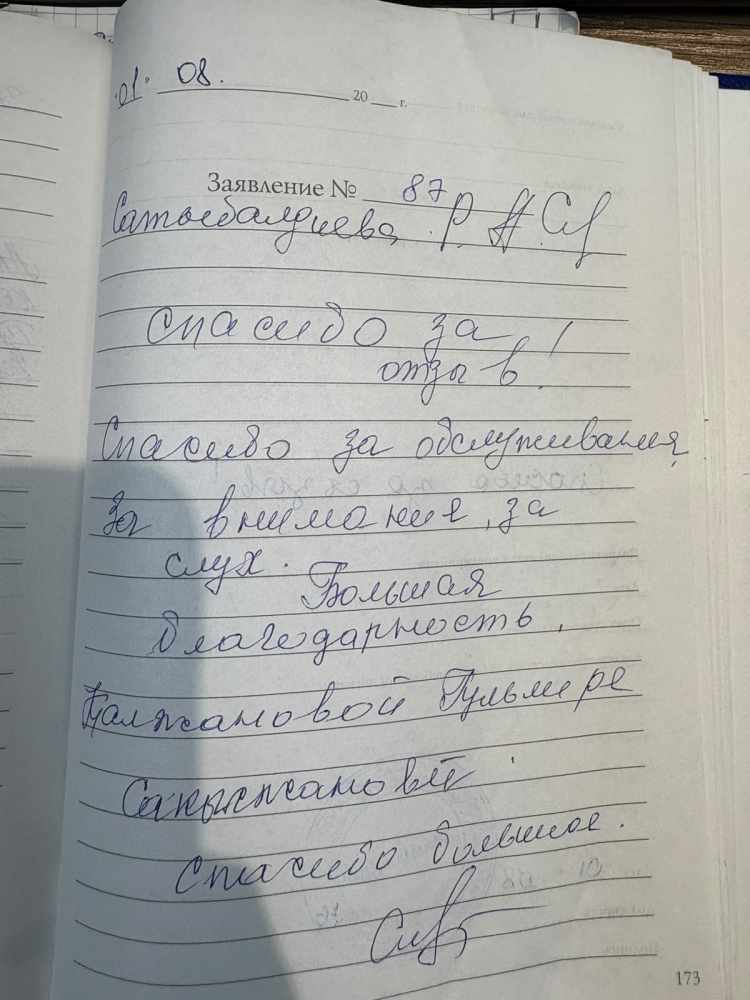 01. 08. 20 г.
Заявление № 87
Сатыбалдиева Р. А.
Спасибо за
отзыв!
Спасибо за обслуживания,
За внимания, за
слух.
Большая
благодарность,
Галжановой Гульмире
Саныжановй.
Спасибо большое.
173